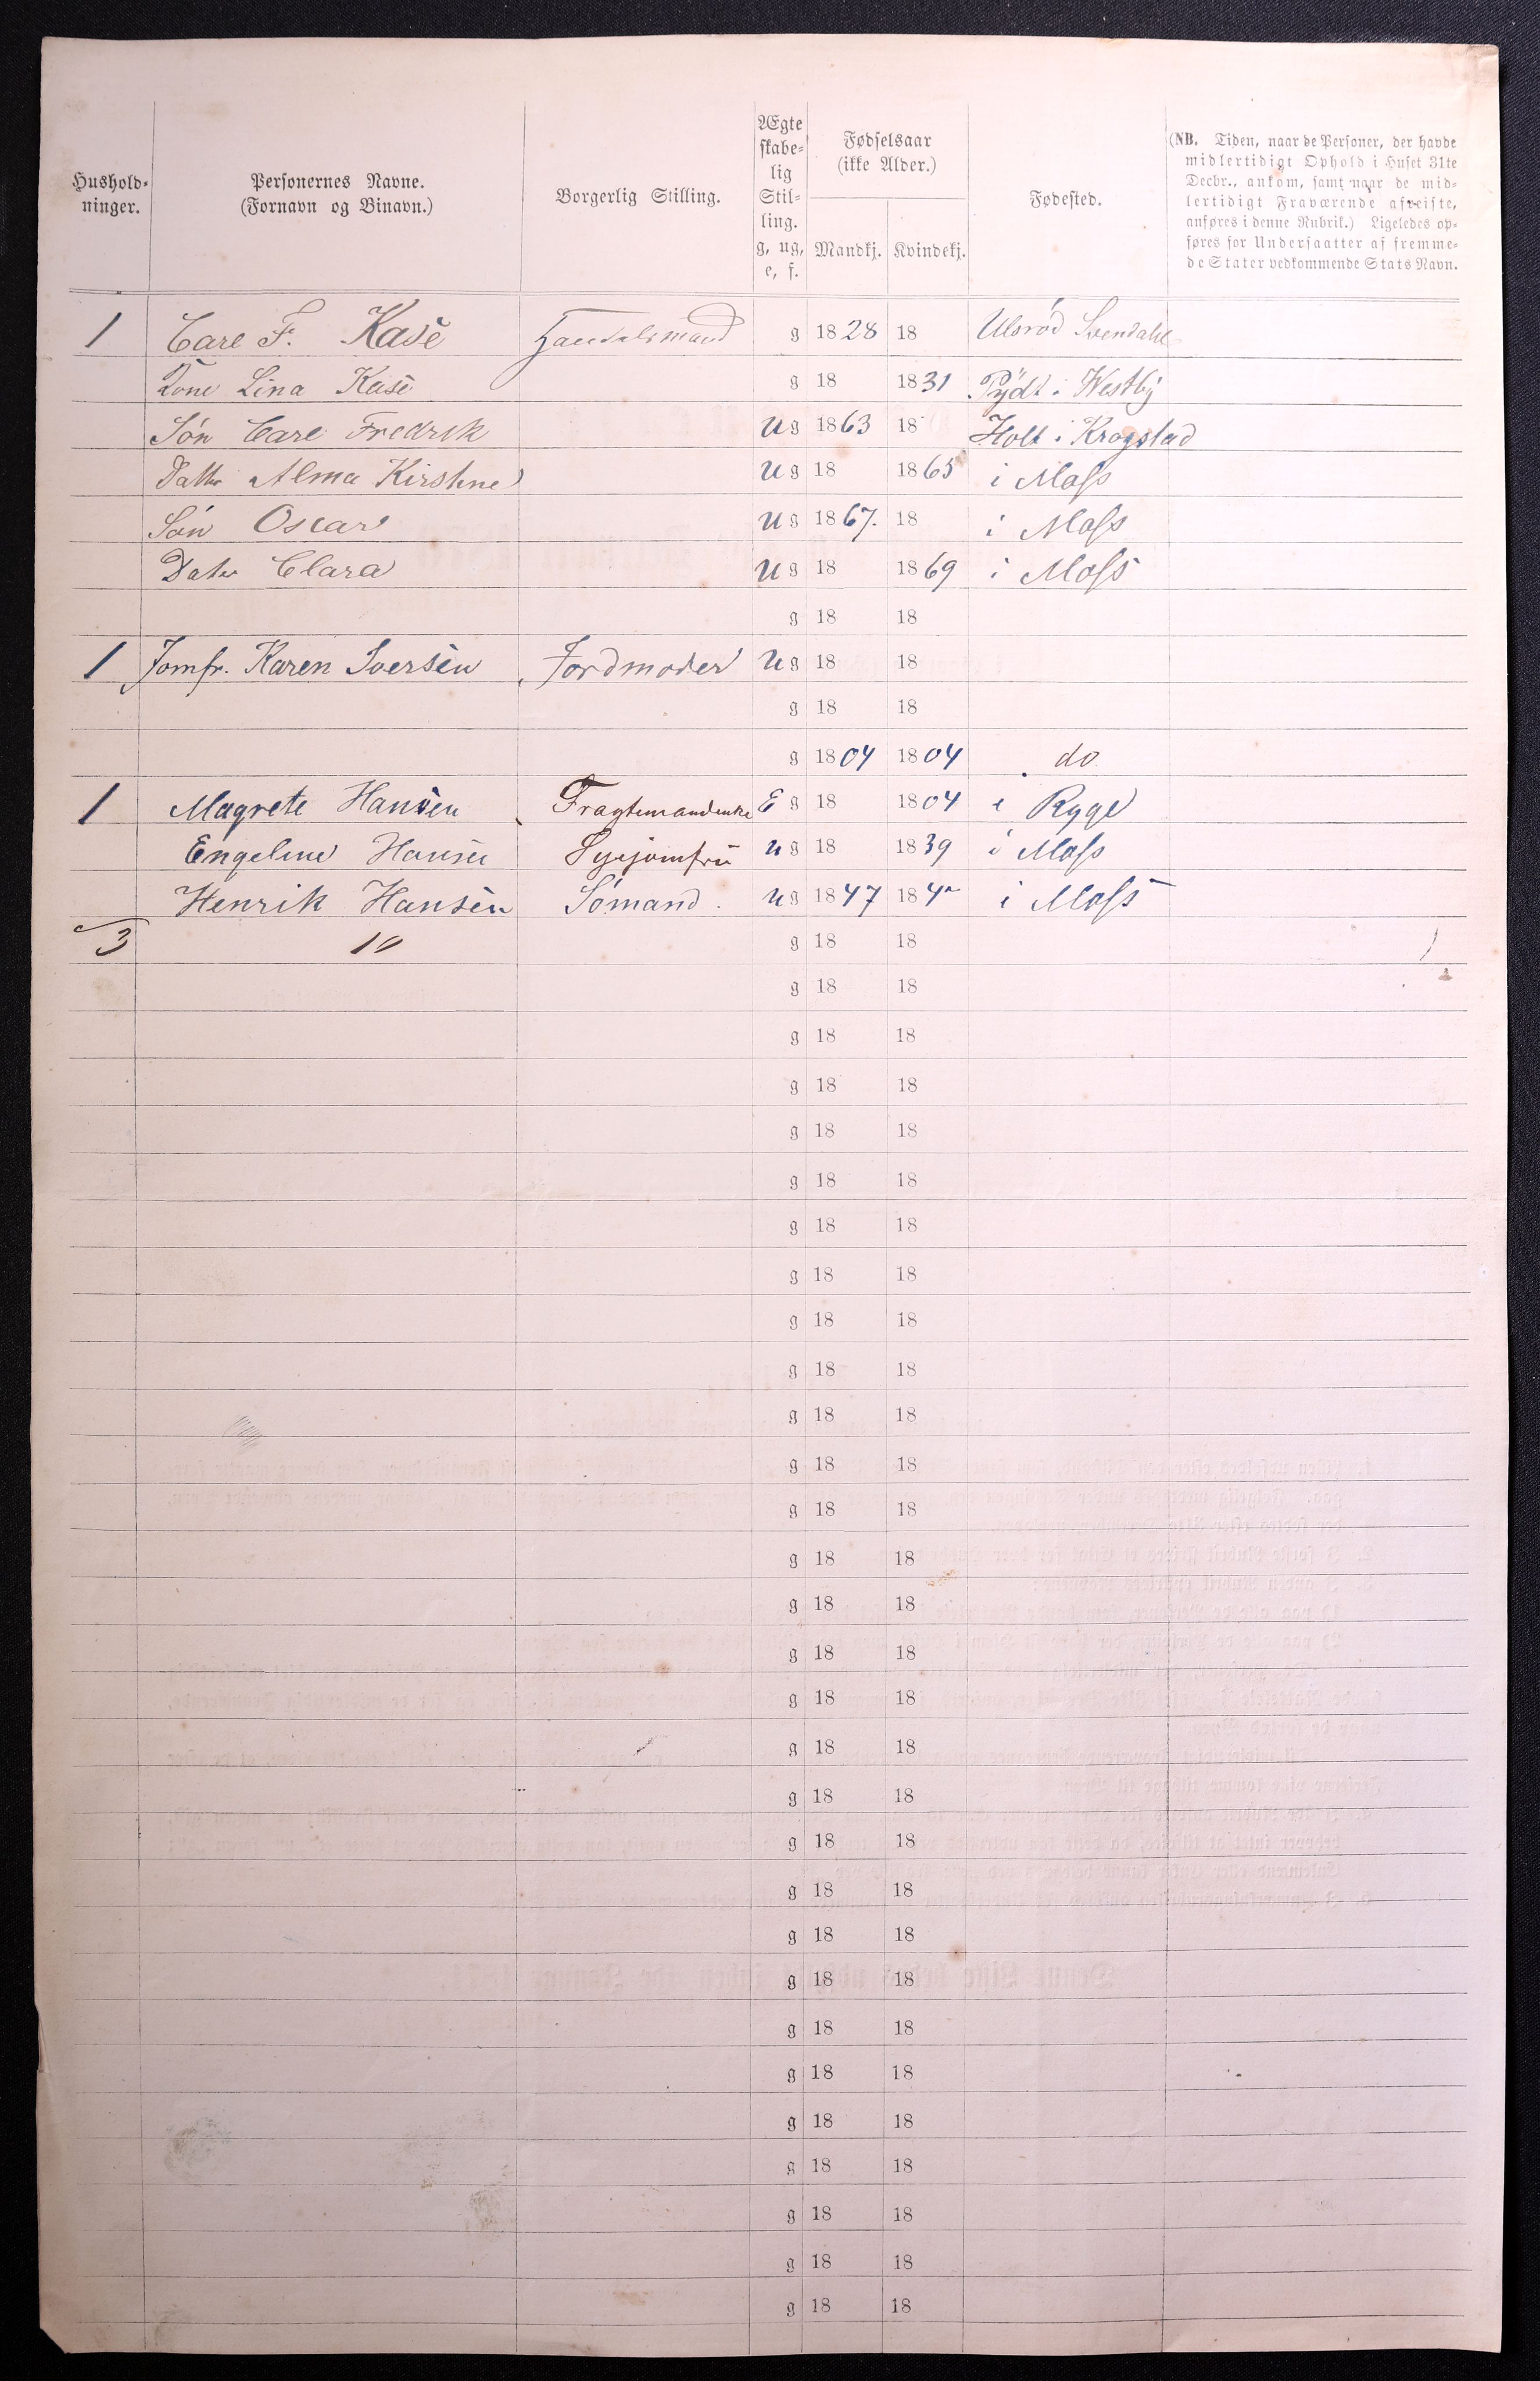 Hushold-
ninger.
Personernes Navne.
(Fornavn og Binavn.)
Borgerlig Stilling.
Ægte
skabe-
lig
Stil-
ling.
g, ug,
e, f.
Fødselsaar
(ikke Alder.)
Mandkj. Kvindekj.
Fødested.
(NB. Tiden, naar de Personer, der havde
midlertidigt Ophold i Huset 31te
Decbr., ankom, samt naar de mid-
lertidigt Fraværende afreiste,
anføres i denne Rubrik.) Ligeledes op-
føres for Undersaatter af fremme-
de Stater vedkommende Stats Navn.
1 Carl F. Kase Handelsmand g 1828 18
Kone Lina Kase g 18 1831 i Westby
Søn Carl Fredrik ug 1863 18 Holt i Kragstad
Datter Alma Kirstine ug 18 1865 i Moss
Søn Oscar ug 1867. 18 i Moss
Dater Clara ug 18 1869 i Moss
g 18 18
1 Jomfr. Karen Iversen Jordmoder ug 18 18
g 18 18
g 1804 1804 do
1 Magrete Hansen Fragtemandenke E g 18 1804 i Rygge
Engeline Hansen Syejomfru ug 18 1839 i Moss
Henrik Hansen Sømand. ug 1847 184 i Moss
3 10 g 18 18
g 18 18
g 18 18
g 18 18
g 18 18
g 18 18
g 18 18
g 18 18
g 18 18
g 18 18
g 18 18
g 18 18
g 18 18
g 18 18
g 18 18
g 18 18
g 18 18
g 18 18
g 18 18
g 18 18
g 18 18
g 18 18
g 18 18
g 18 18
g 18 18
g 18 18
g 18 18
g 18 18
g 18 18
g 18 18